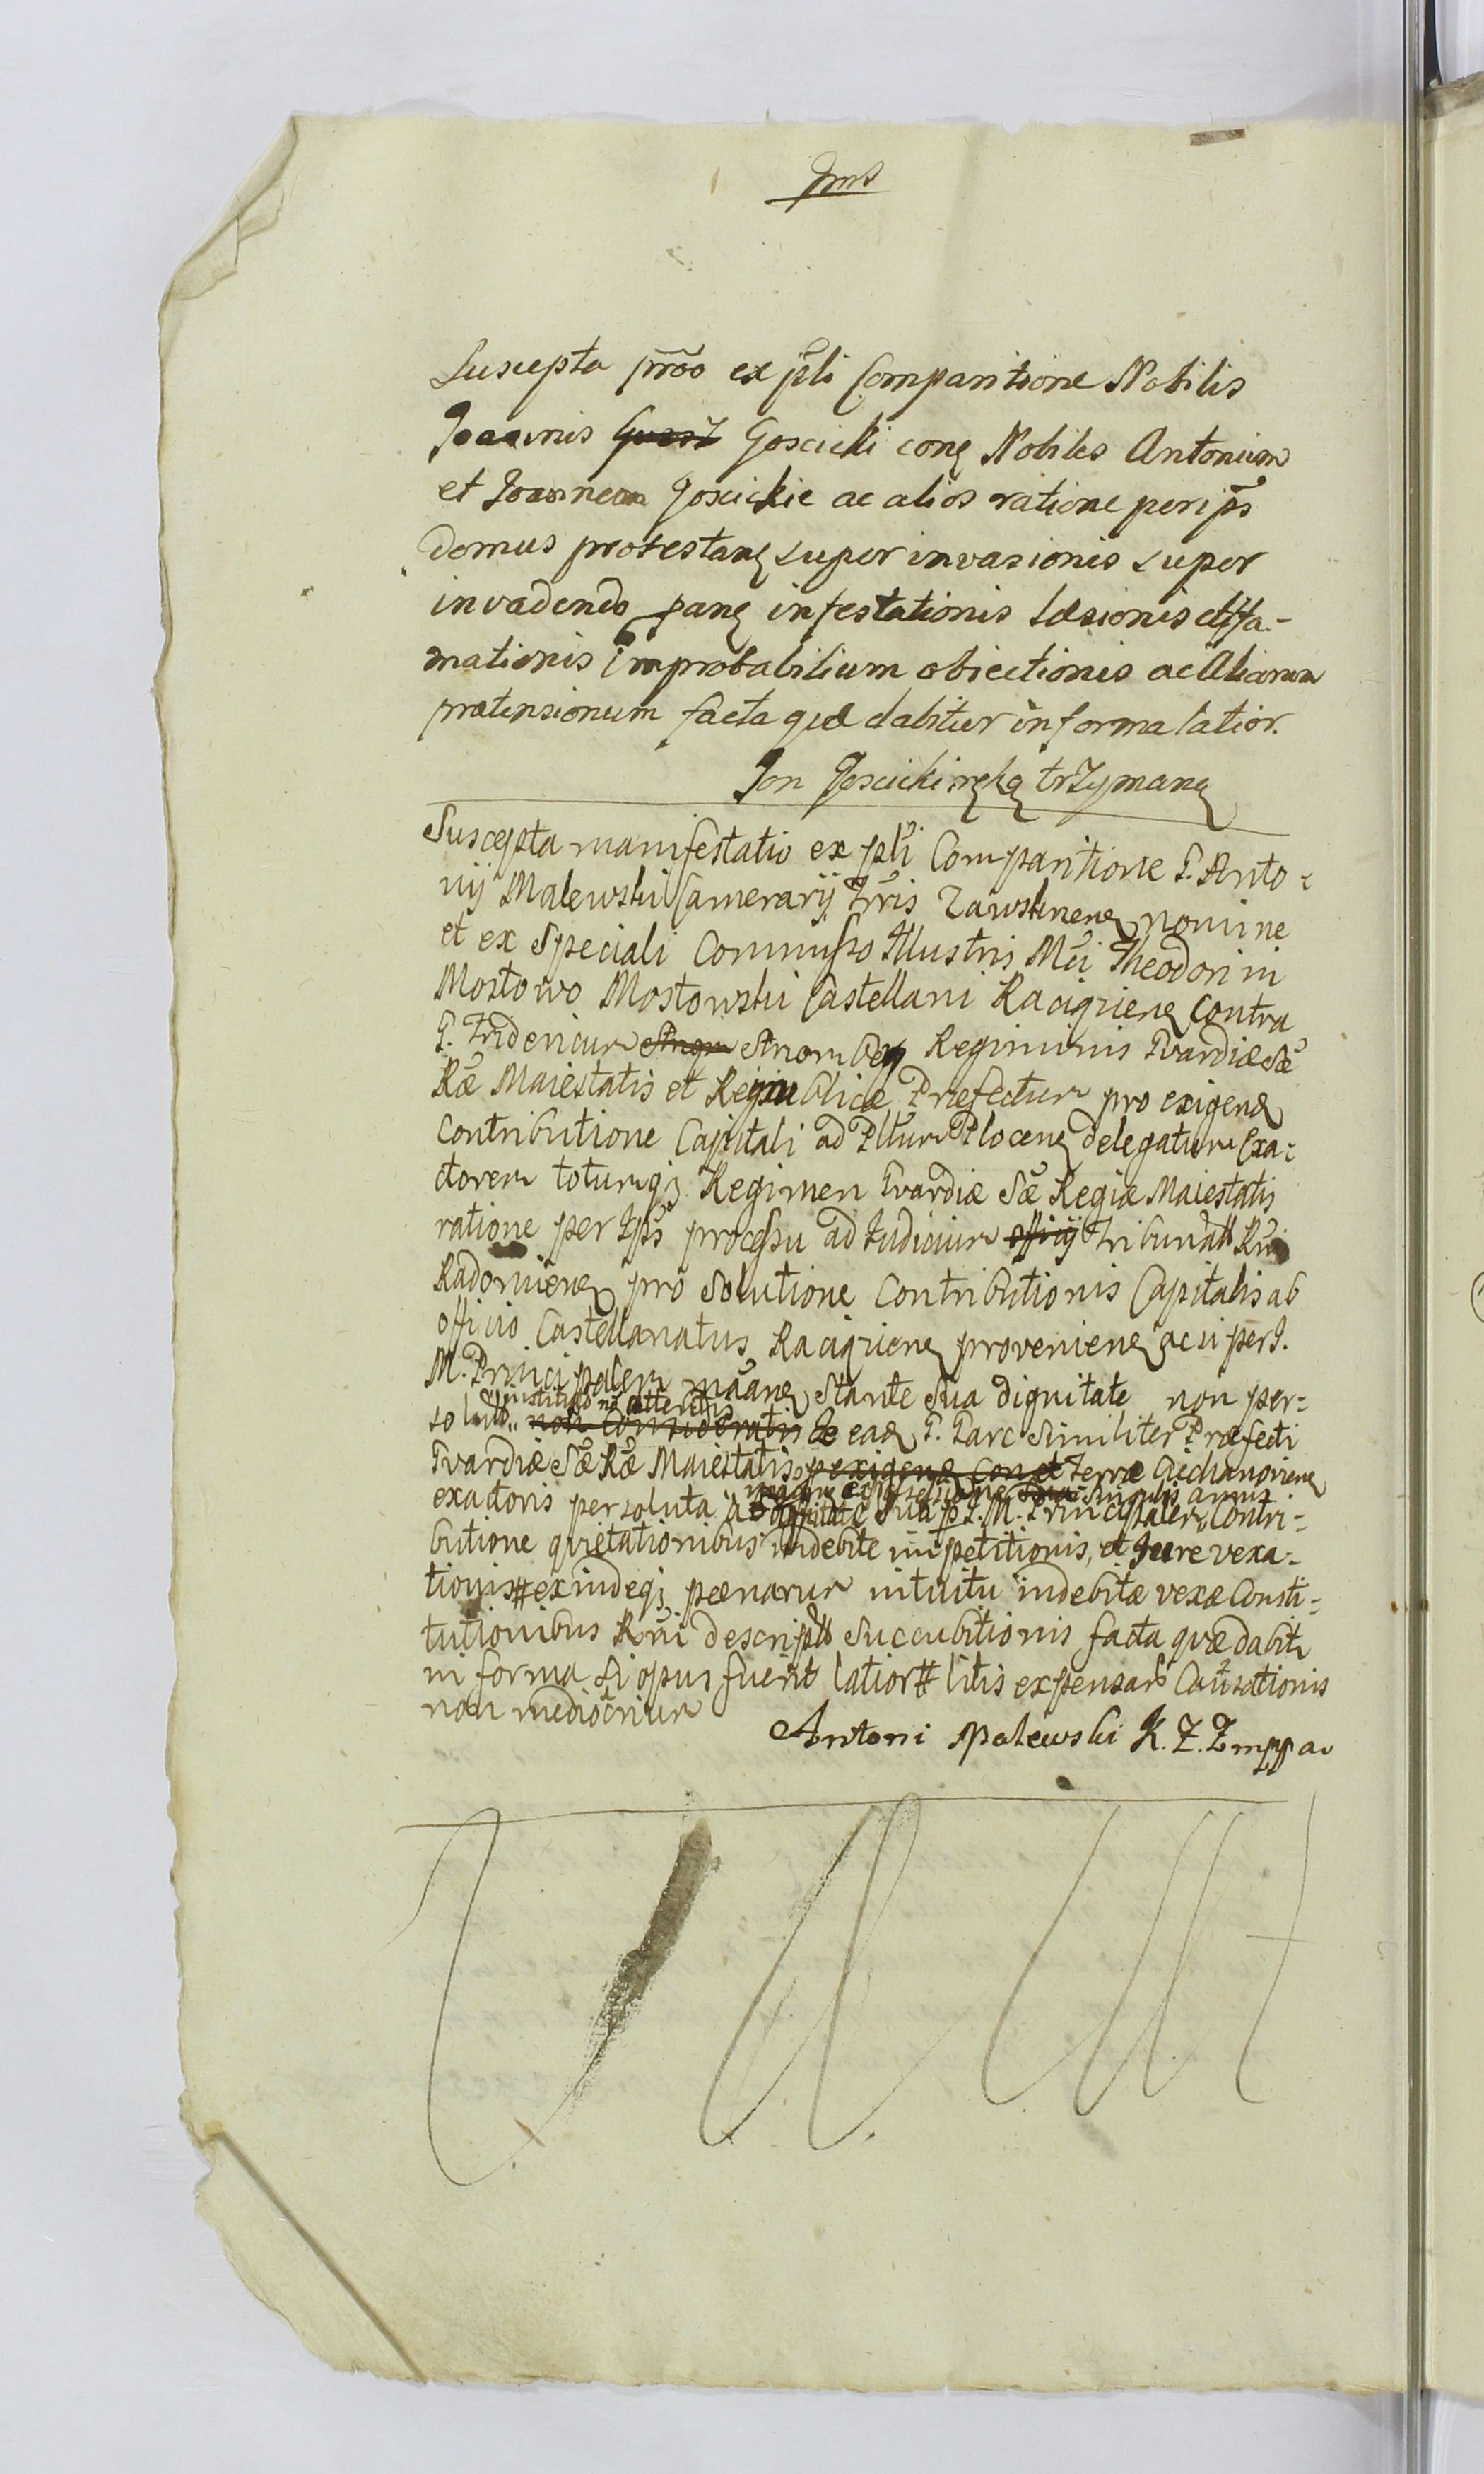 Suscepta prõo ex pñli Comparitione Nobilis
Joannis Goscicki conꝗ Nobiles Antonium
et Joannem Goscickie ac alios ratione per ips
domus protestanꝗ super invasionis super
invadendo panꝗ infestationis læsionis diffa-
mationis improbabilium obiectionis ac Aliarum
prætensionum facta quæ dabitur in forma latior.
Jan Goscicki ręką trzymaną
Suscepta manifestatio ex pñli Comparitione G. Anto-
nij Malewski Camerarij Trris Zawskrnenꝗ nomine
et ex Speciali Commisso Illustris Mci Theodori in
Mostowo Mostowski Castellani Raciąznenꝗ Contra
G. Fridericum Regiminis Gvardiæ Sæ
Ræ Maiestatis et Reipublicæ Præfectum pro exigenꝗ
Contributione Capitali ad Pltum Plocenꝗ delegatum Exa-
ctorem totumqꝫ Regimen Gvardiæ Sæ Regiæ Maiestatis
ratione per Ips processu ad Judicium Tribunalis Rni
Radomienꝗ pro Solutione Contributionis Capitalis ab
officio Castellanatus Raciąznenꝗ provenienꝗ ac si per J.
M. Principalem Stante Sua dignitate non per-
soluto instituto nõ attentis eadꝗ G. Parc Similiter Præfecti
Gvardiæ Sæ Ræ Maiestatis Terræ Ciechanovienꝗ
exactoris persoluta Singulis annis
a dignitate Sua p J. M. Principalem Contri-
butione quietationibus indebite impetitionis, et Jure vexa-
tionis # exindeqꝫ pænarum intuitu indebitæ vexæ Consti-
tutionibus Rni descriptis Succubitionis facta quæ dabitr
in forma Si opus fuerit latior # litis expensarũ Causationis
non mediocrium
Antoni Malewski K. Z. Z mppa